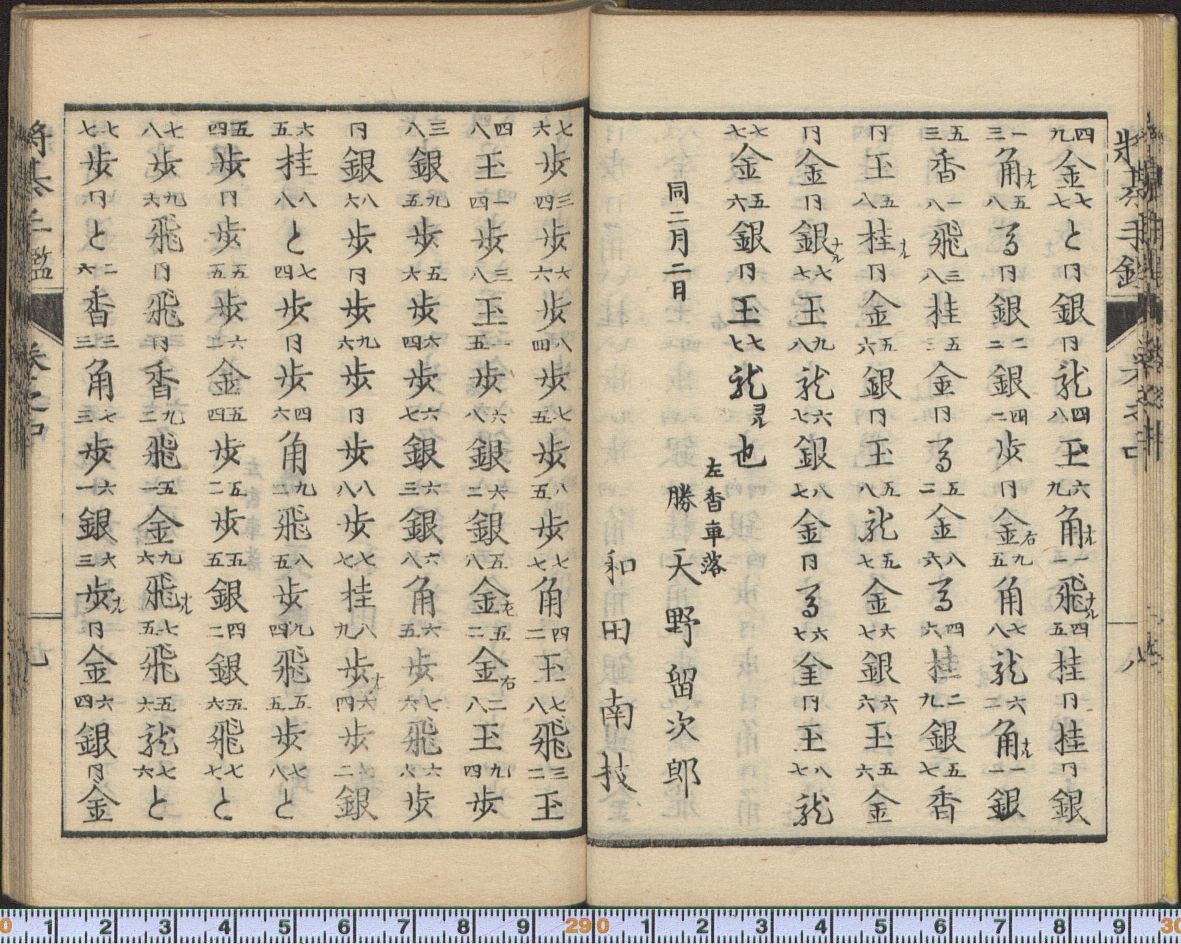 将棊手鑑
四九金七七と同銀同龍四八王六九角ナル一二飛ナル四五桂同桂同銀
一三角ナル五八馬同銀二二銀四二歩同金右九五角七八龍六二角ナル一一銀
五三香一八飛三八桂五三金同馬五二金八六馬四六桂二九銀五七香
同王五八桂ナル同金五六銀同王五八龍五七金六七銀六六王五六金
同金同銀ナル六七王九八龍六七銀八七金同馬六七金同王八七龍
七七金五六銀同王七七龍ヨル也
同二月二日
左香車落
勝 天野留次郎
和田南技
七六歩三四歩六六歩八四歩七五歩八五歩七七角四二王七八飛三二玉
四八玉一四歩三八玉一五歩六八銀六二銀五八金左五二金右二八玉九四歩
三八銀九五歩五六歩六四歩六七銀六三銀六八角六五歩七六飛六六歩
同銀八六歩同歩九六歩同歩八八歩七七桂八九歩ナル六四歩一二銀
六五桂八八と七四歩同歩四六角九二飛八五歩九四飛五五歩七八と
五四歩同歩五五歩六四金五四歩五二歩五五銀四二銀五六飛七七と
七八歩九六飛同飛同香九三飛五一金九六飛ナル七五飛五六龍七六と
七七歩同と二六香三三角七三歩六一銀六三歩ナル同金六四銀同金
将棊手鑑 巻之中 九